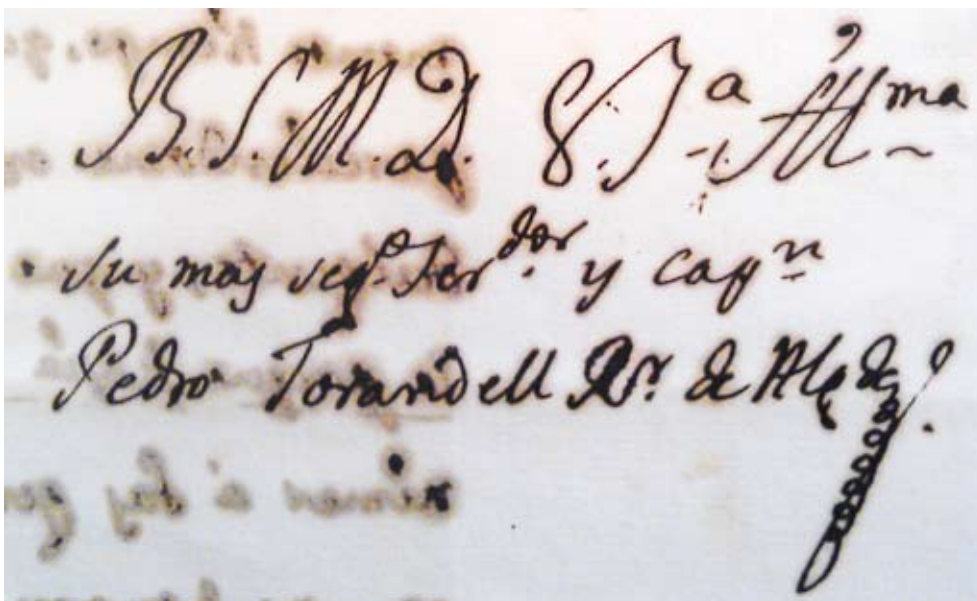 B. S. M. D. V. S.ª Ill.ma
su mas seg.º ser.dor y cap.n
Pedro Torandell R.r de